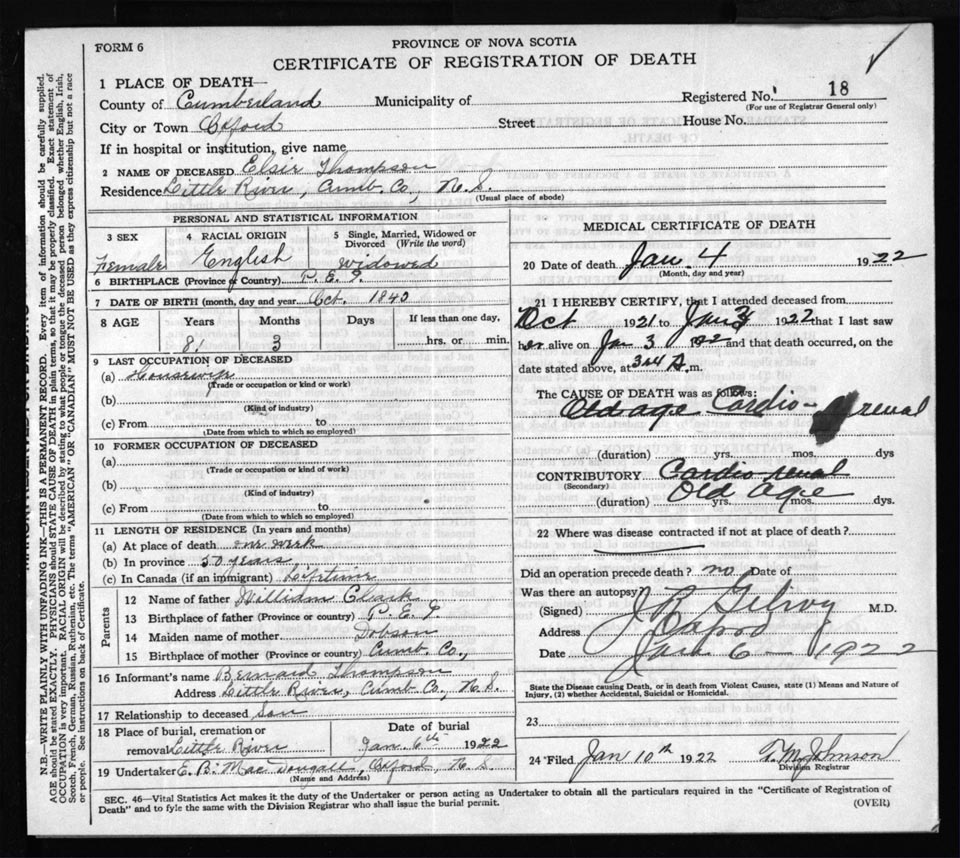 FORM 6
PROVINCE OF NOVA SCOTIA
CERTIFICATE OF REGISTRATION OF DEATH
1 PLACE OF DEATH—
County of Cumberland Municipality of
Registered No. 18
(For use of Registrar General only)
City or Town Oxford Street House No.
If in hospital or institution, give name
2 NAME OF DECEASED Elsie Thompson
Residence Little River, Cumb. Co., N. S.
(Usual place of abode)
PERSONAL AND STATISTICAL INFORMATION
3 SEX 4 RACIAL ORIGIN 5 Single, Married, Widowed or Divorced (Write the word)
Female English Widowed
6 BIRTHPLACE (Province or Country) P. E. I.
7 DATE OF BIRTH (month, day and year) Oct. 1840
8 AGE Years Months Days If less than one day,
81 3 hrs. or min.
9 LAST OCCUPATION OF DECEASED
(a) Housewife
(Trade or occupation or kind or work)
(b)
(Kind of industry)
(c) From to
(Date from which to which so employed)
10 FORMER OCCUPATION OF DECEASED
(a)
(Trade or occupation or kind or work)
(b)
(Kind of industry)
(c) From to
(Date from which to which so employed)
11 LENGTH OF RESIDENCE (In years and months)
(a) At place of death one week
(b) In province 50 years
(c) In Canada (if an immigrant) Lifetime
Parents
12 Name of father William Clark
13 Birthplace of father (Province or country) P. E. I.
14 Maiden name of mother Dobson
15 Birthplace of mother (Province or country) Cumb. Co.,
16 Informant's name Bernard Thompson
Address Little River, Cumb. Co., N. S.
17 Relationship to deceased Son
18 Place of burial, cremation or removal Little River
Date of burial
Jan 6th 1922
19 Undertaker E. B. Mac Dougall, Oxford, N. S.
(Name and Address)
MEDICAL CERTIFICATE OF DEATH
20 Date of death Jan. 4 1922
(Month, day and year)
21 I HEREBY CERTIFY, that I attended deceased from
Oct 1921 to Jan 1922 that I last saw
her alive on Jan 3 1922 and that death occurred, on the
date stated above, at A.m.
The CAUSE OF DEATH was as follows:
Old age Cardio-renal
(duration) yrs. mos. dys
CONTRIBUTORY Cardio-renal
(Secondary) Old Age
(duration) yrs. mos. dys.
22 Where was disease contracted if not at place of death?
Did an operation precede death? no Date of
Was there an autopsy?
(Signed) M.D.
Address Oxford
Date Jan 6 - 1922
State the Disease causing Death, or in death from Violent Causes, state (1) Means and Nature of
Injury, (2) whether Accidental, Suicidal or Homicidal.
23
24 Filed Jan 10th 1922 Johnson
Division Registrar
SEC. 46—Vital Statistics Act makes it the duty of the Undertaker or person acting as Undertaker to obtain all the particulars required in the "Certificate of Registration of
Death" and to fyle the same with the Division Registrar who shall issue the burial permit.
(OVER)
N.B.—WRITE PLAINLY WITH UNFADING INK—THIS IS A PERMANENT RECORD. Every item of information should be carefully supplied.
AGE should be stated EXACTLY. PHYSICIANS should STATE CAUSE OF DEATH in plain terms, so that it may be properly classified. Exact statement of
OCCUPATION is very important. RACIAL ORIGIN will be described by stating to what people or tongue the deceased person belonged whether English, Irish,
Scotch, French, German, Russian, Ruthenian, etc. The terms "AMERICAN" OR "CANADIAN" MUST NOT BE USED as they express citizenship but not a race
or people. See instructions on back of Certificate.